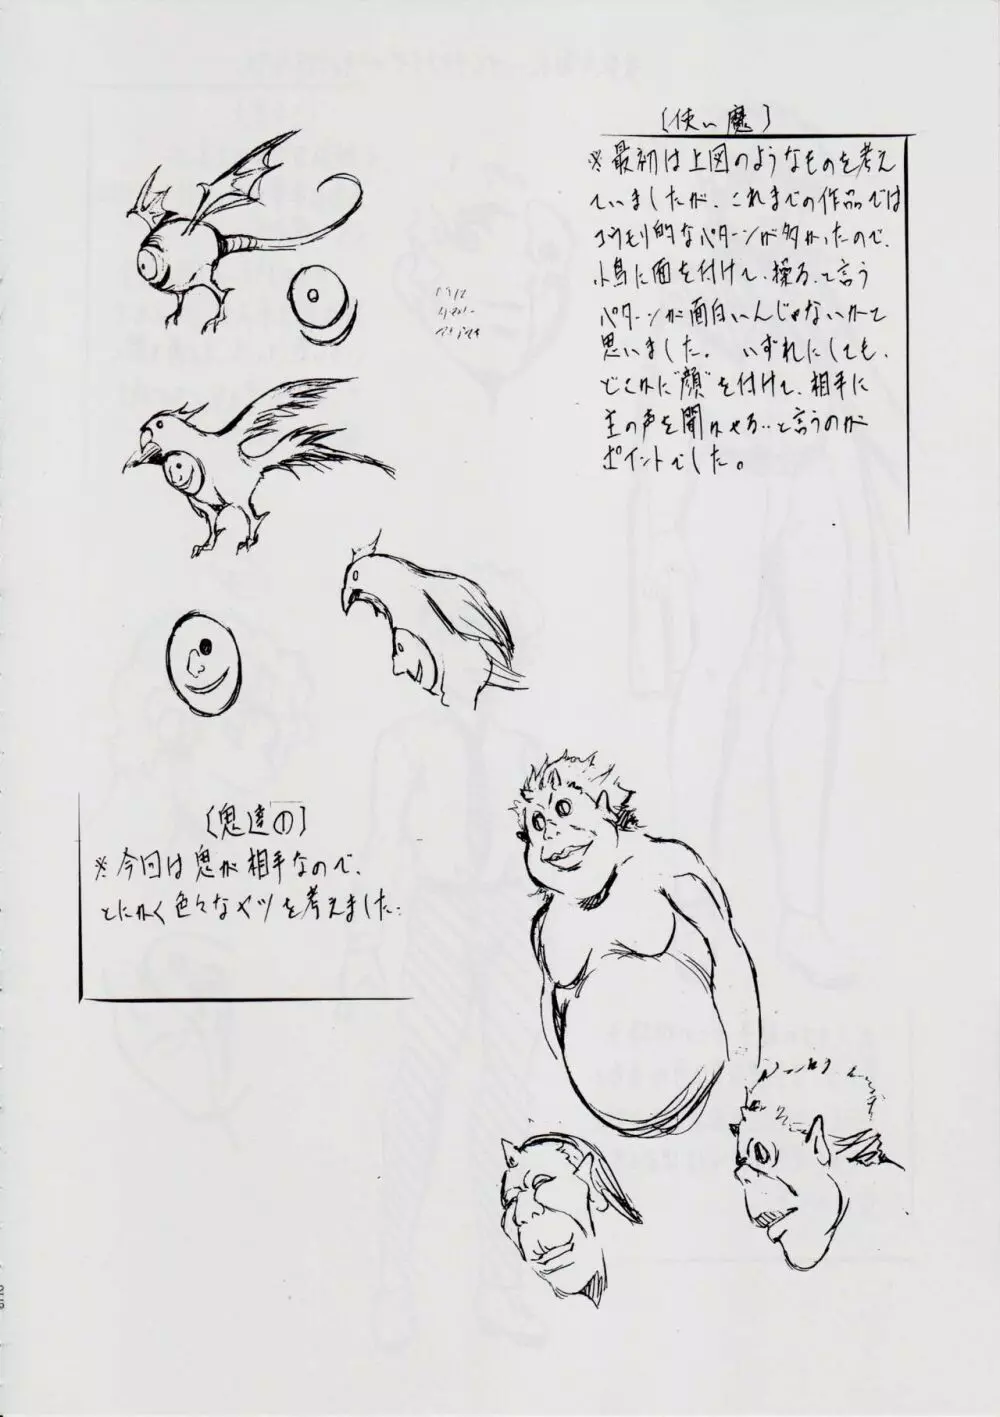 〔使い魔〕
※最初は上図のようなものを考え
ていましたが、これまでの作品では
コウモリ的なパターンが多かったので、
小鳥に面を付けて、操る、と言う
パターンが面白いんじゃないかて
思いました。 いずれにしても、
どこかに"顔"を付けて、相手に
主の声を聞かせる‥と言うのが
ポイントでした。
〔鬼達の〕
※今回は鬼が相手なので、
とにかく色々なヤツを考えました‥
26